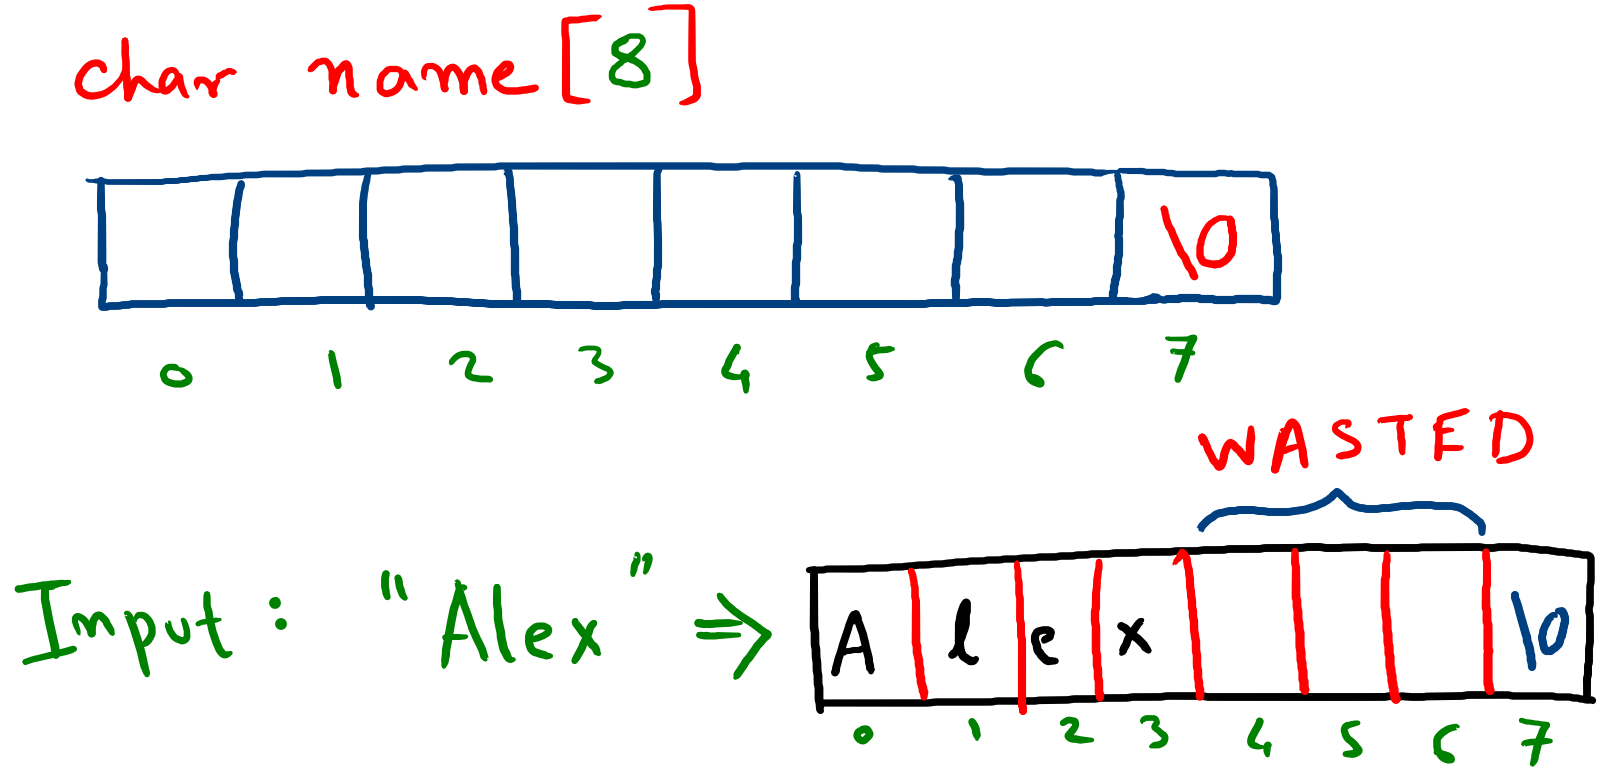 char name[8]
\0
0 1 2 3 4 5 6 7
WASTED
Input: "Alex" ⇒ A l e x \0
0 1 2 3 4 5 6 7